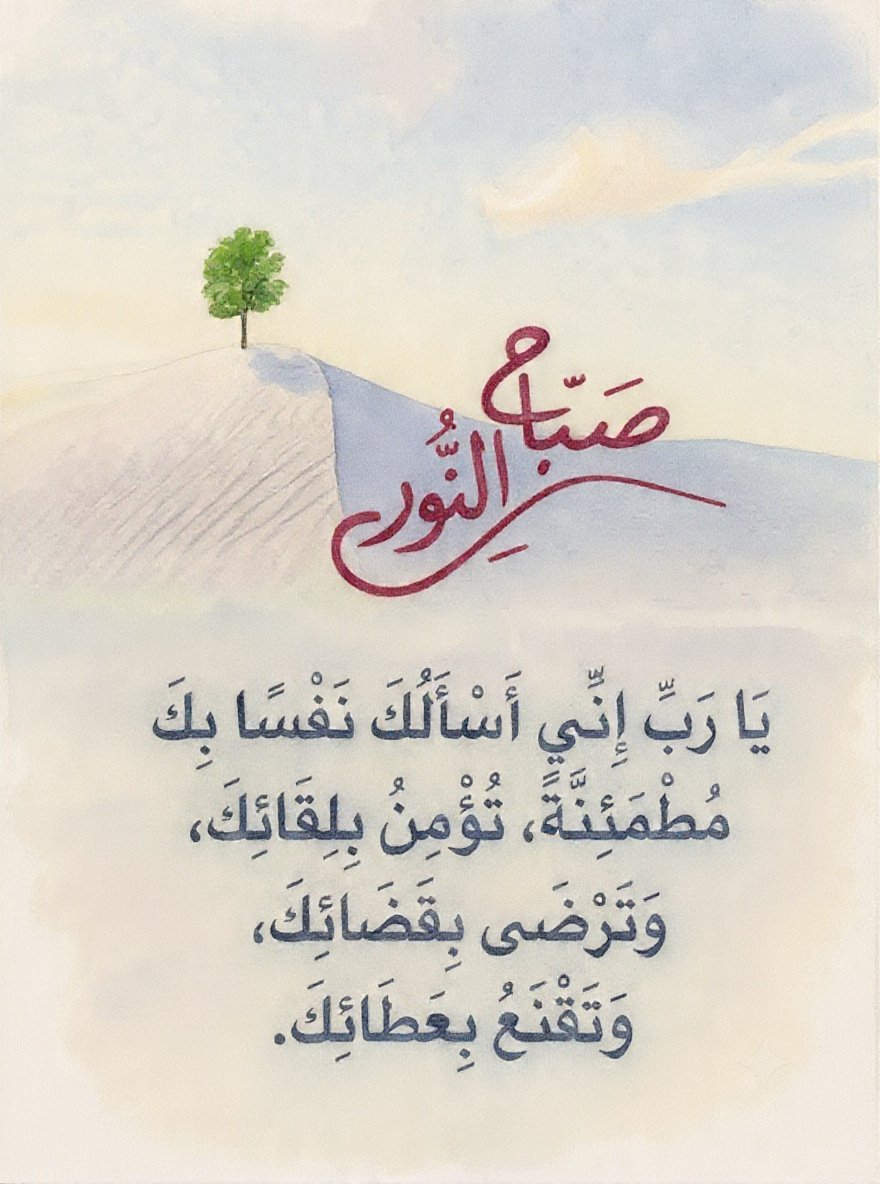 صَبَّاح
النُّور
يَا رَبِّ إِنِّي أَسْأَلُكَ نَفْسًا بِكَ
مُطْمَئِنَّةً، تُؤْمِنُ بِلِقَائِكَ،
وَتَرْضَى بِقَضَائِكَ،
وَتَقْنَعُ بِعَطَائِكَ.